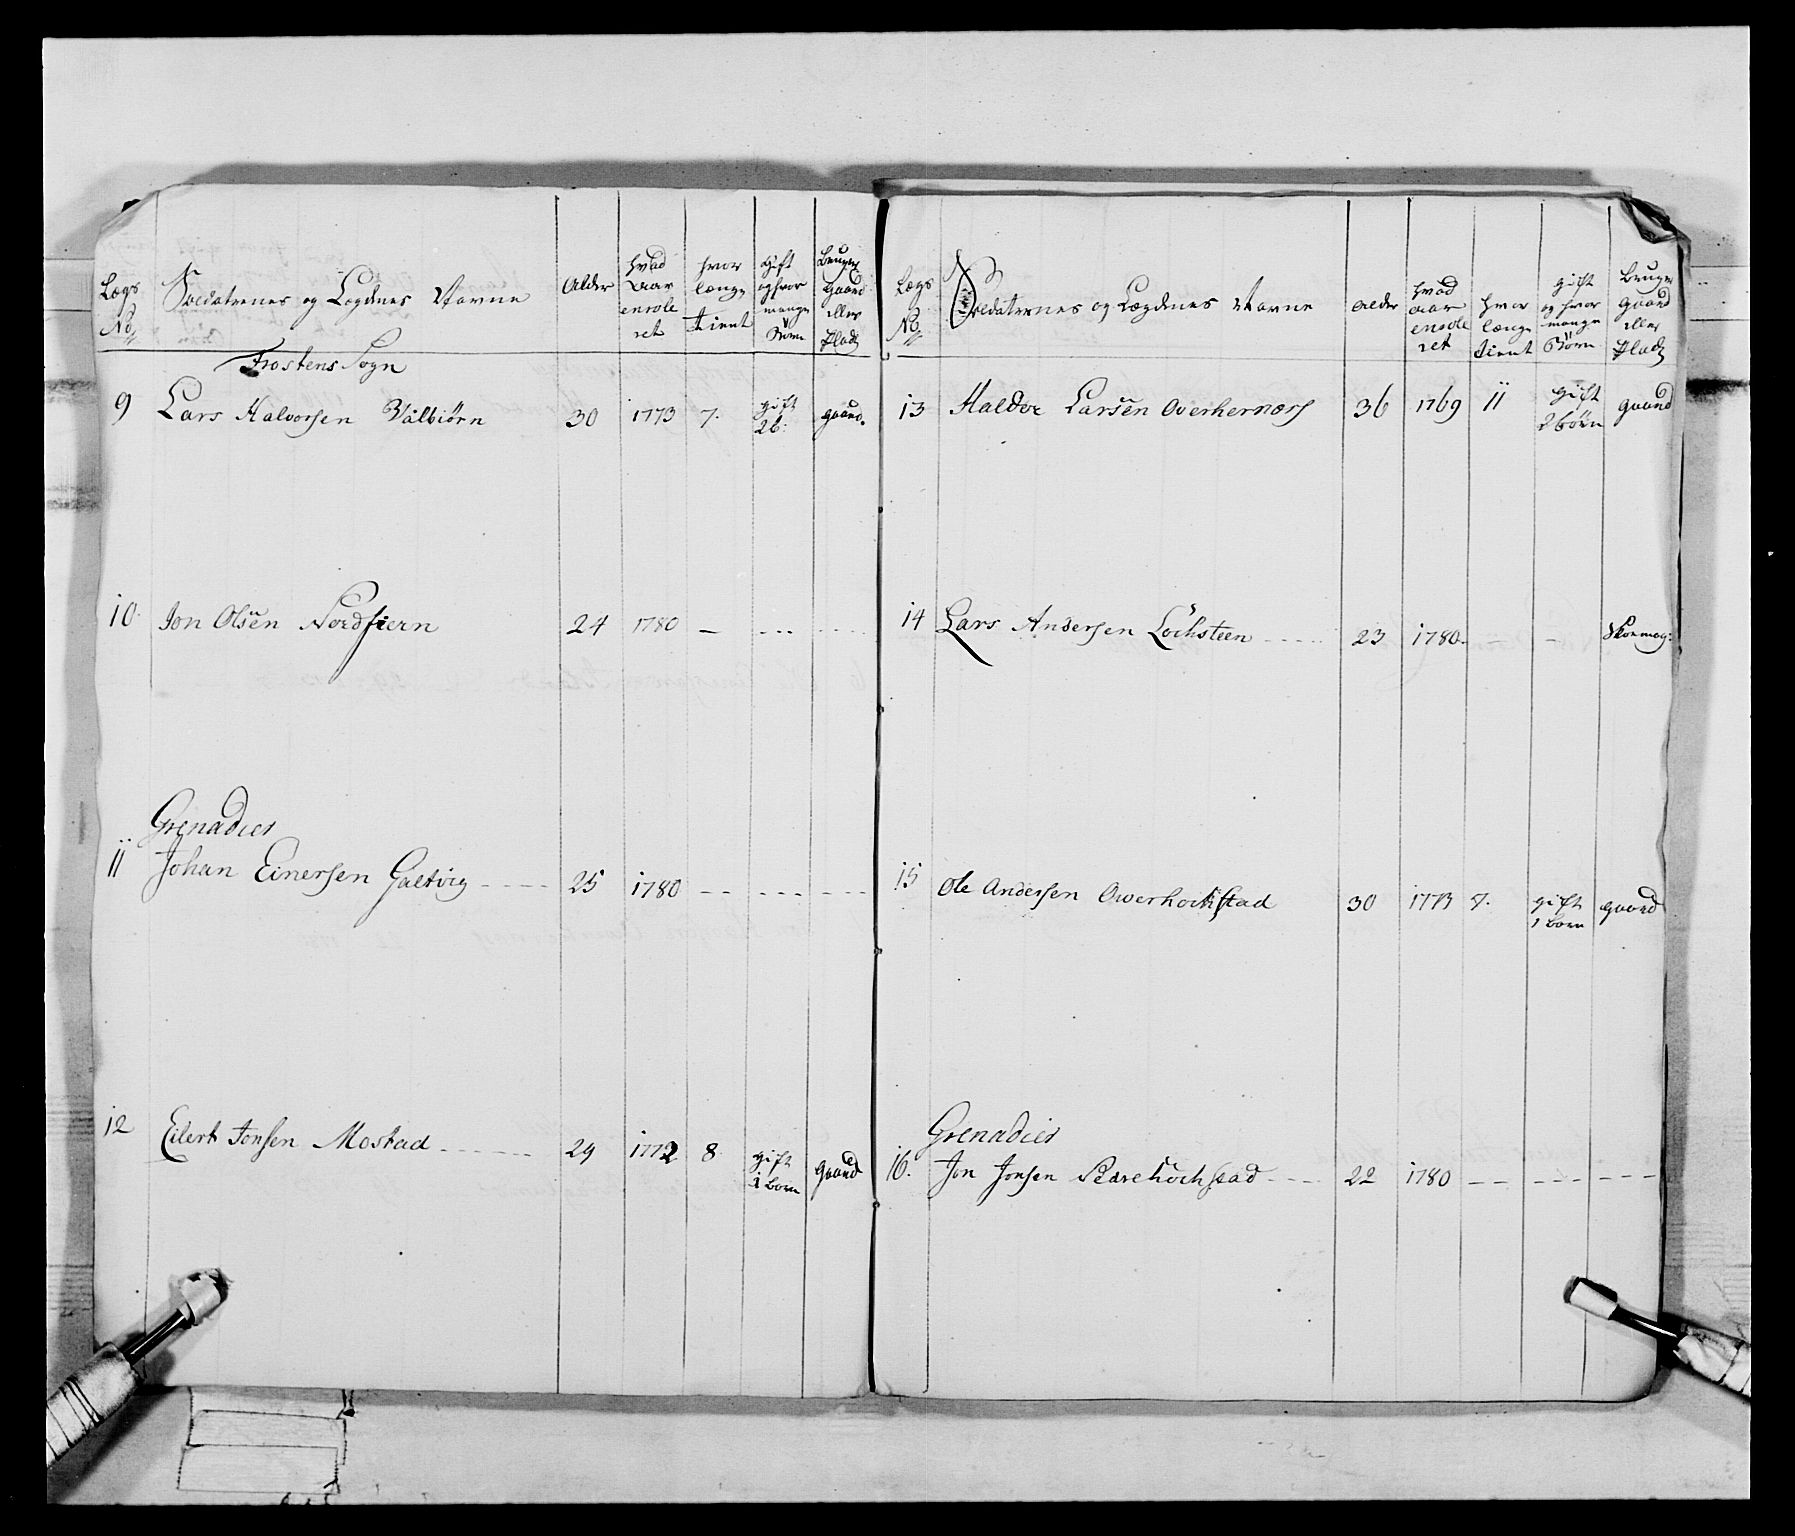 Lægs No Soldaternes og Lægdnes Navne Alder hvad aar enrole ret hvor længe tient gift og hvor mange Børn Bruger gaard eller Plads
Frostens Sogn
9 Lars Halvorsen Valbiörn 30 1773 7. gift 2 b: gaard.
10. Jon Olsen Nordfiern 24 1780 – --- ---
Grenadier
11 Johan Einersen Galtvig ---- 25 1780 -- --- ---
12 Eilert Jonsen Mostad ----- 29 1772 8. gift 1 barn gaard
Lægs No Soldaternes og Lægdnes Navne alder hvad aar enrole ret hvor længe tient gift og hvor mange Börn Bruger gaard eller Plads
13 Haldor Larsen Overhernæss 36 1769 11 gift 2 börn gaard
14 Lars Andersen Lochsteen ---- 23 1780. – –
15 Ole Andersen Owerhochstad 30 1773 7. gift 1 barn gaard
Grenadier
16. Jon Jonsen Nedrehochstad ---- 22 1780 -- --- ---